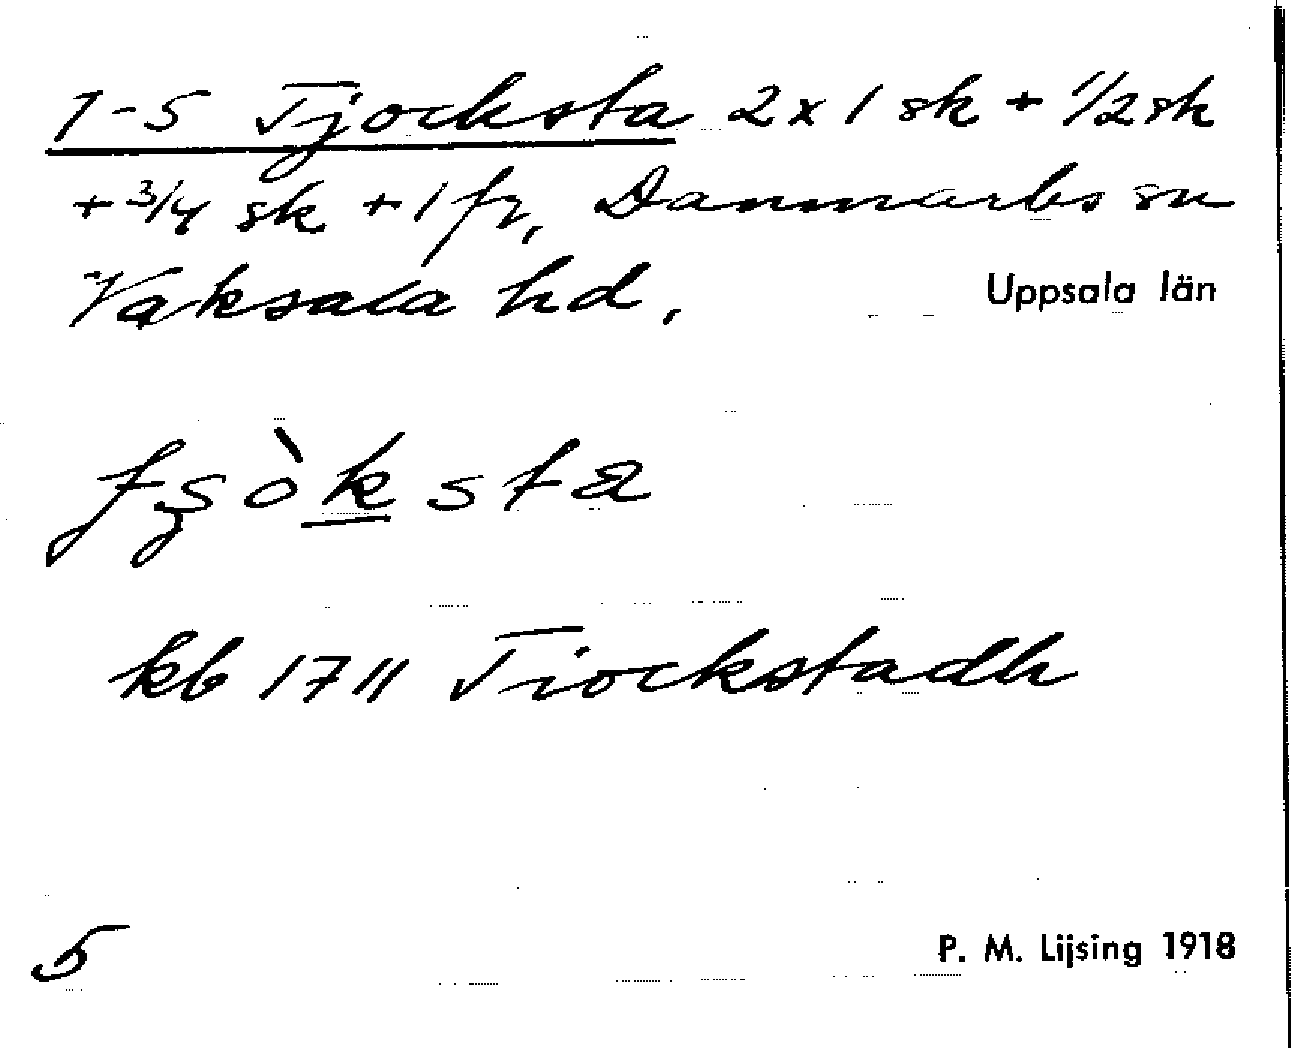 1-5 Tjocksta 2x1 sk + 1/2 sk
+ 3/4 sk + 1 fr, Danmarks sn
Vaksala hd,
Uppsala län
kb 1711 Tiockstadh
5
P. M. Lijsing 1918